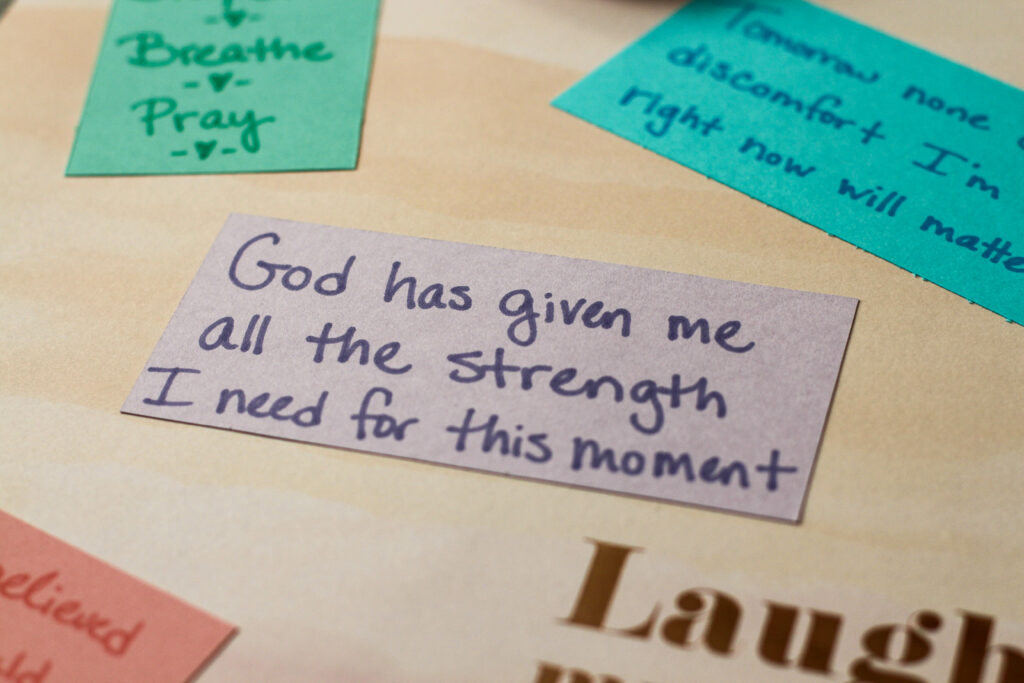 Breathe
Pray
Tomorrow none
discomfort I'm
right now will
God has given me
all the strength
I need for this moment
believed
Laugh